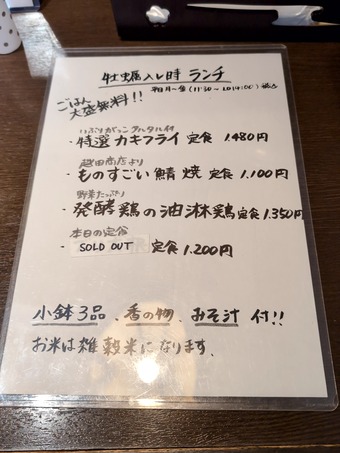 牡蠣入レ時 ランチ
平日 月〜金 (11:30〜LO14:00) 税込
ごはん
大盛無料!!
いぶりがっこタルタル付
・特選 カキフライ 定食 1.480円
越田商店より
・ものすごい鯖 焼 定食 1.100円
野菜たっぷり
・発酵鶏の油淋鶏 定食 1.350円
本日の定食
・ SOLD OUT 定食 1.200円
小鉢3品、香の物、みそ汁 付!!
お米は雑穀米になります、